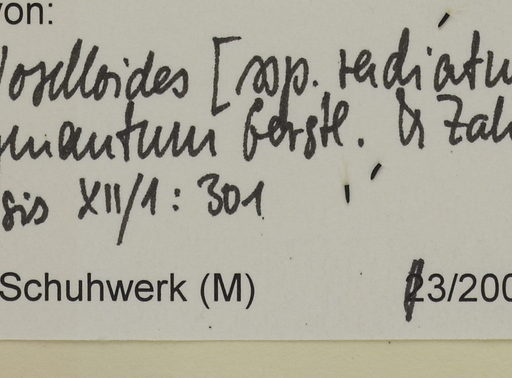 von:
oselloides [ssp. radiatu
mantum Gerstl. & Zah
sis XII/1: 301
Schuhwerk (M) 3/200